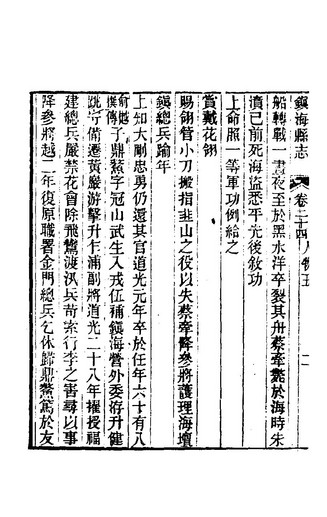 鎮海縣志 卷二十四 人物五 二
船轉戰一晝夜至於黑水洋卒裂其舟蔡牽斃於海時朱
濆已前死海盜悉平先後敘功
上命照一等軍功例給之
賞戴花翎
賜翎管小刀搬指韭山之役以失蔡牽降參將護理海壇
鎮總兵踰年
上知大剛忠勇仍還其官道光元年卒於任年六十有八
俞樾撰傳子鼎鰲字冠山武生入戎伍補鎮海營外委洊升健
跳守備遷黃巖游擊升乍浦副將道光二十八年擢授福
建總兵嚴禁花會除飛鸞渡汛兵苛索行李之害尋以事
降參將越二年復原職署金門總兵乞休歸鼎鰲篤於友